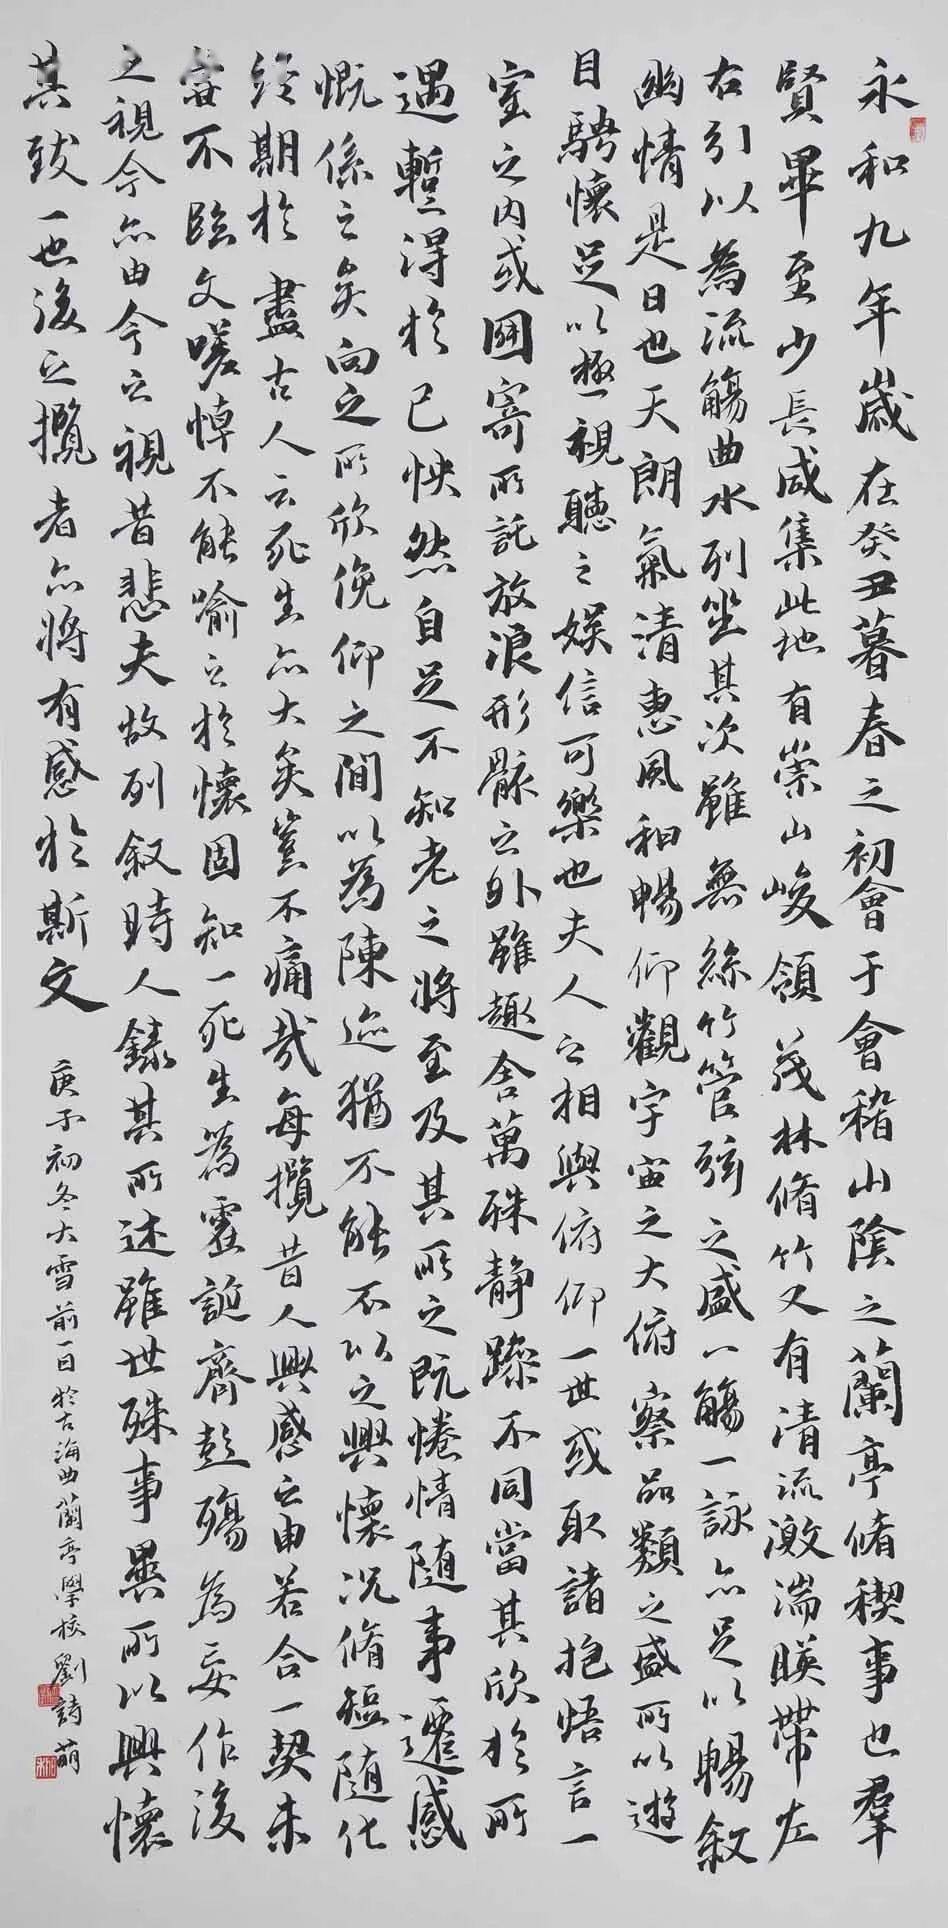 永和九年歲在癸丑暮春之初會于會稽山陰之蘭亭脩稧事也羣
賢畢至少長咸集此地有崇山峻領茂林脩竹又有清流激湍暎帶左
右引以為流觴曲水列坐其次雖無絲竹管弦之盛一觴一詠亦足以暢敘
幽情是日也天朗氣清惠風和暢仰觀宇宙之大俯察品類之盛所以遊
目騁懷足以極視聽之娛信可樂也夫人之相與俯仰一世或取諸抱悟言一
室之內或因寄所託放浪形骸之外雖趣舍萬殊静躁不同當其欣於所
遇暫得於己怏然自足不知老之將至及其所之既惓情随事遷感
慨係之矣向之所欣俛仰之間以為陳迹猶不能不以之興懷況脩短随化
終期於盡古人云死生亦大矣豈不痛哉每攬昔人興感之由若合一契未
嘗不臨文嗟悼不能喻之於懷固知一死生為虛誕齊彭殤為妄作後
之視今亦由今之視昔悲夫故列敘時人錄其所述雖世殊事異所以興懷
其致一也後之攬者亦將有感於斯文
庚子初冬大雪前一日於古海曲蘭亭學校劉詩萌